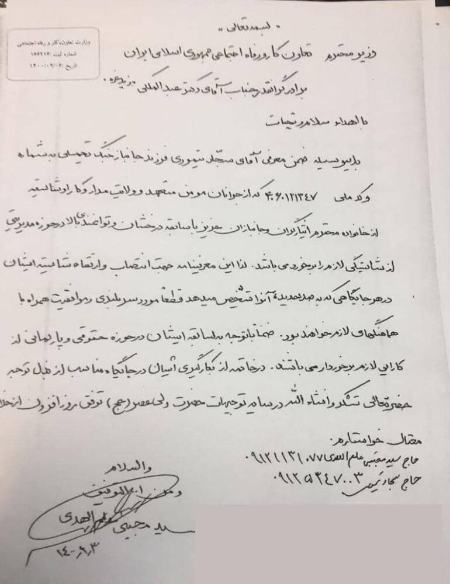 بسمه تعالی
وزارت تعاون، کار و رفاه اجتماعی
وزیر محترم تعاون کار و رفاه اجتماعی جمهوری اسلامی ایران
برادر گرانقدر جناب آقای دکتر عبدالملکی
با اهداء سلام و تحیات
بدینوسیله ضمن معرفی آقای تیموری فرزند جانباز جنگ تحمیلی به شماره
و کد ملی که از جوانان مومن متعهد و ولایت مدار و کارآمد
از خانواده محترم ایثارگران و جانبازان عزیز با سابقه درخشان و توانمندی بالا در حوزه مدیریتی
از شایستگی لازم برخوردار می باشد. لذا این معرفینامه جهت انتصاب و ارتقاء شایسته ایشان
در هر جایگاهی که به صلاحدید آنرا تشخیص میدهد قطعا مورد سربلندی و موفقیت همراه با
هماهنگیهای لازم خواهد بود. ضمنا باتوجه به سابقه ایشان در حوزه حقوقی و پارلمانی از
کارایی لازم برخوردار می باشند. در خاتمه از بکارگیری ایشان در جایگاه مناسب از قبل توجه
حضرتعالی تشکر و انشاء الله در سایه توجهات حضرت ولی عصر (عج) توفیق روز افزون از خدا
حاج سید مجتبی علم الهدی ۰۹۱۲۱۱۳۱۰۷۷
حاج سجاد ۰۹۱۲
والسلام
و من الله التوفیق
سید مجتبی علم الهدی